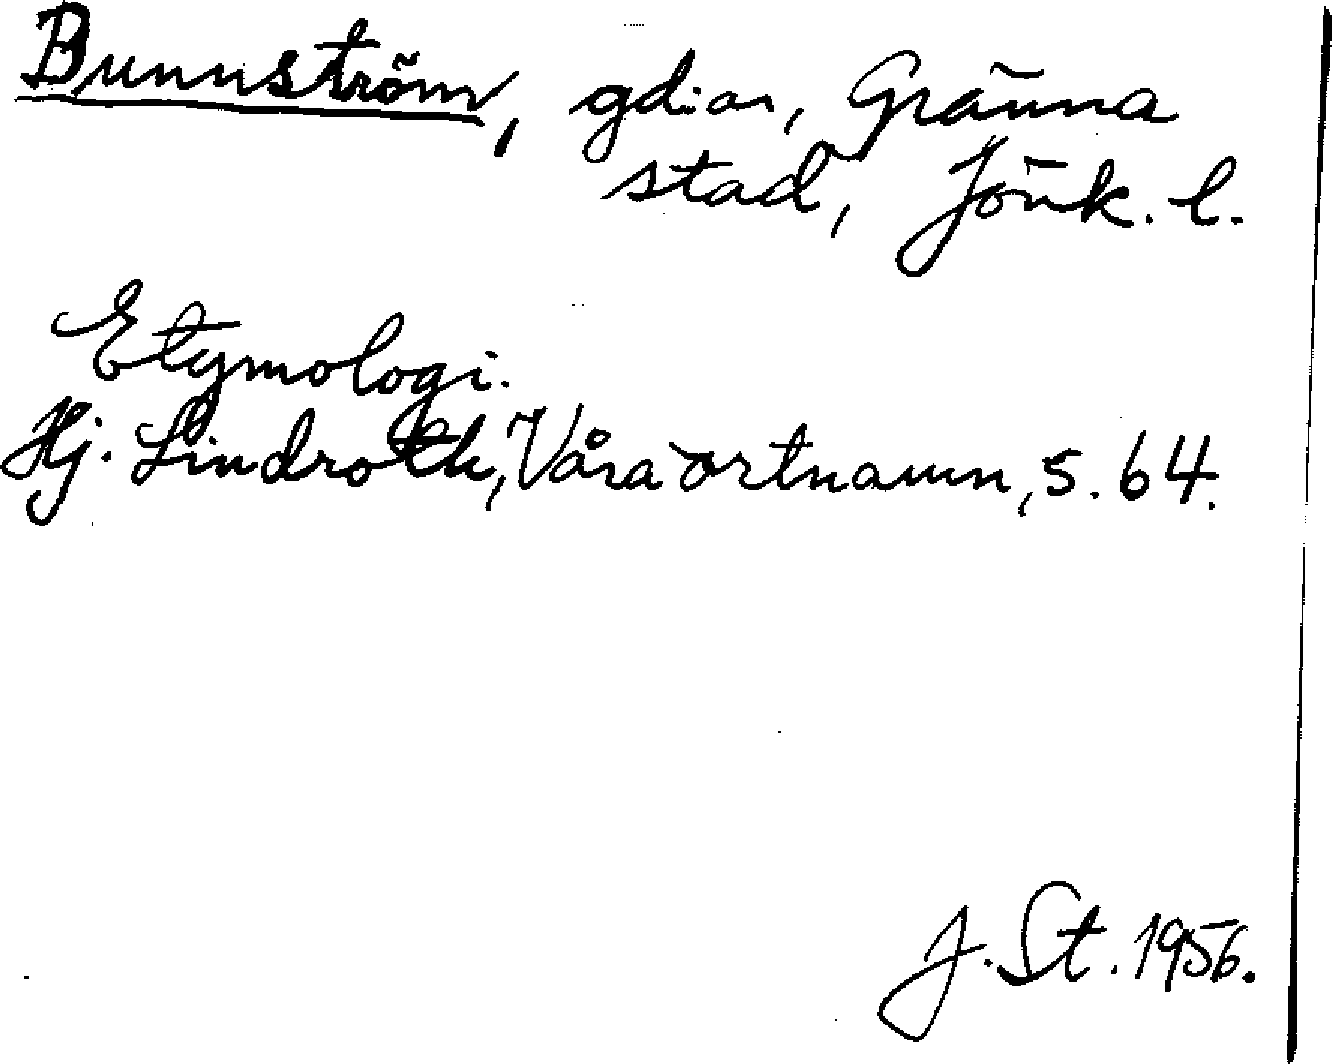 Bunnström, gd:ar, Gränna
stad, Jönk. l.
Etymologi.
Hj. Lindroth, Våra ortnamn, s. 64.
J. St. 1956.